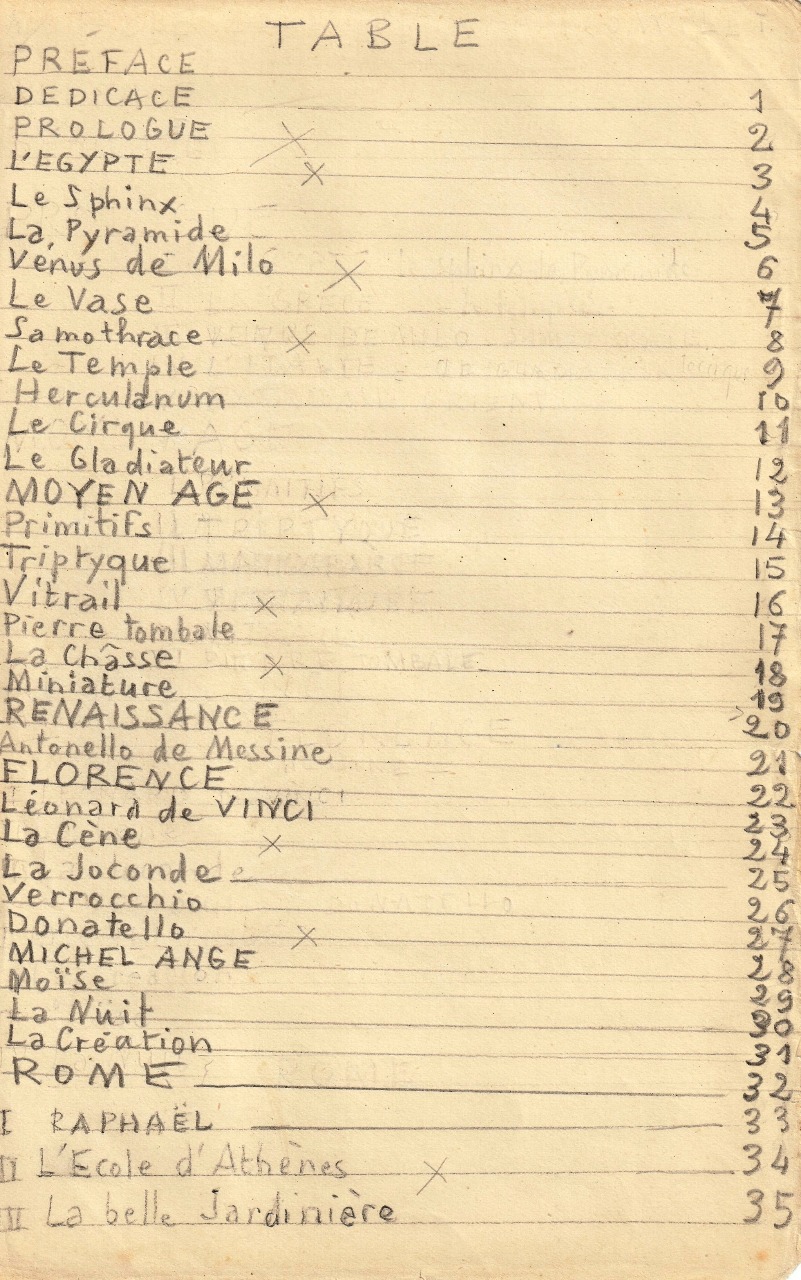 TABLE
PRÉFACE
DEDICACE 1
PROLOGUE 2
L'EGYPTE 3
Le Sphinx 4
La Pyramide 5
Venus de Milo 6
Le Vase 7
Samothrace 8
Le Temple 9
Herculanum 10
Le Cirque 11
Le Gladiateur 12
MOYEN AGE 13
Primitifs 14
Triptyque 15
Vitrail 16
Pierre tombale 17
La Châsse 18
Miniature 19
RENAISSANCE 20
Antonello de Messine 21
FLORENCE 22
Léonard de VINCI 23
La Cène 24
La Joconde 25
Verrocchio 26
Donatello 27
MICHEL ANGE 28
Moïse 29
La Nuit 30
La Création 31
ROME 32
I RAPHAËL 33
II L'Ecole d'Athènes 34
III La belle Jardinière 35